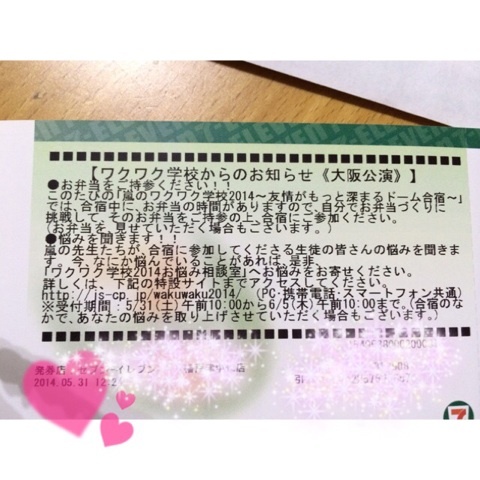 7-ELEVEN
【ワクワク学校からのお知らせ《大阪公演》】
●お弁当をご持参ください!!
このたびの「嵐のワクワク学校2014～友情がもっと深まるドーム合宿～」
では、合宿中に、お弁当の時間がありますので、自分でお弁当づくりに
挑戦して、そのお弁当をご持参の上、合宿にご参加ください。
(お弁当を、見せていただく場合もございます。)
●悩みを聞きます!!
嵐の先生たちが、合宿に参加してくださる生徒の皆さんの悩みを聞きま
す。今、なにか悩んでいることがあれば、是非、
「ワクワク学校2014お悩み相談室」へお悩みをお寄せください。
詳しくは、下記の特設サイトまでアクセスしてください。
http://js-cp.jp/wakuwaku2014/ (PC・携帯電話・スマートフォン共通)
※受付期間:5/31(土)午前10:00から6/5(木)午前10:00まで。(合宿のな
かで、あなたの悩みを取り上げさせていただく場合もございます。)
発券店 セブン-イレブン
2014.05.31
7